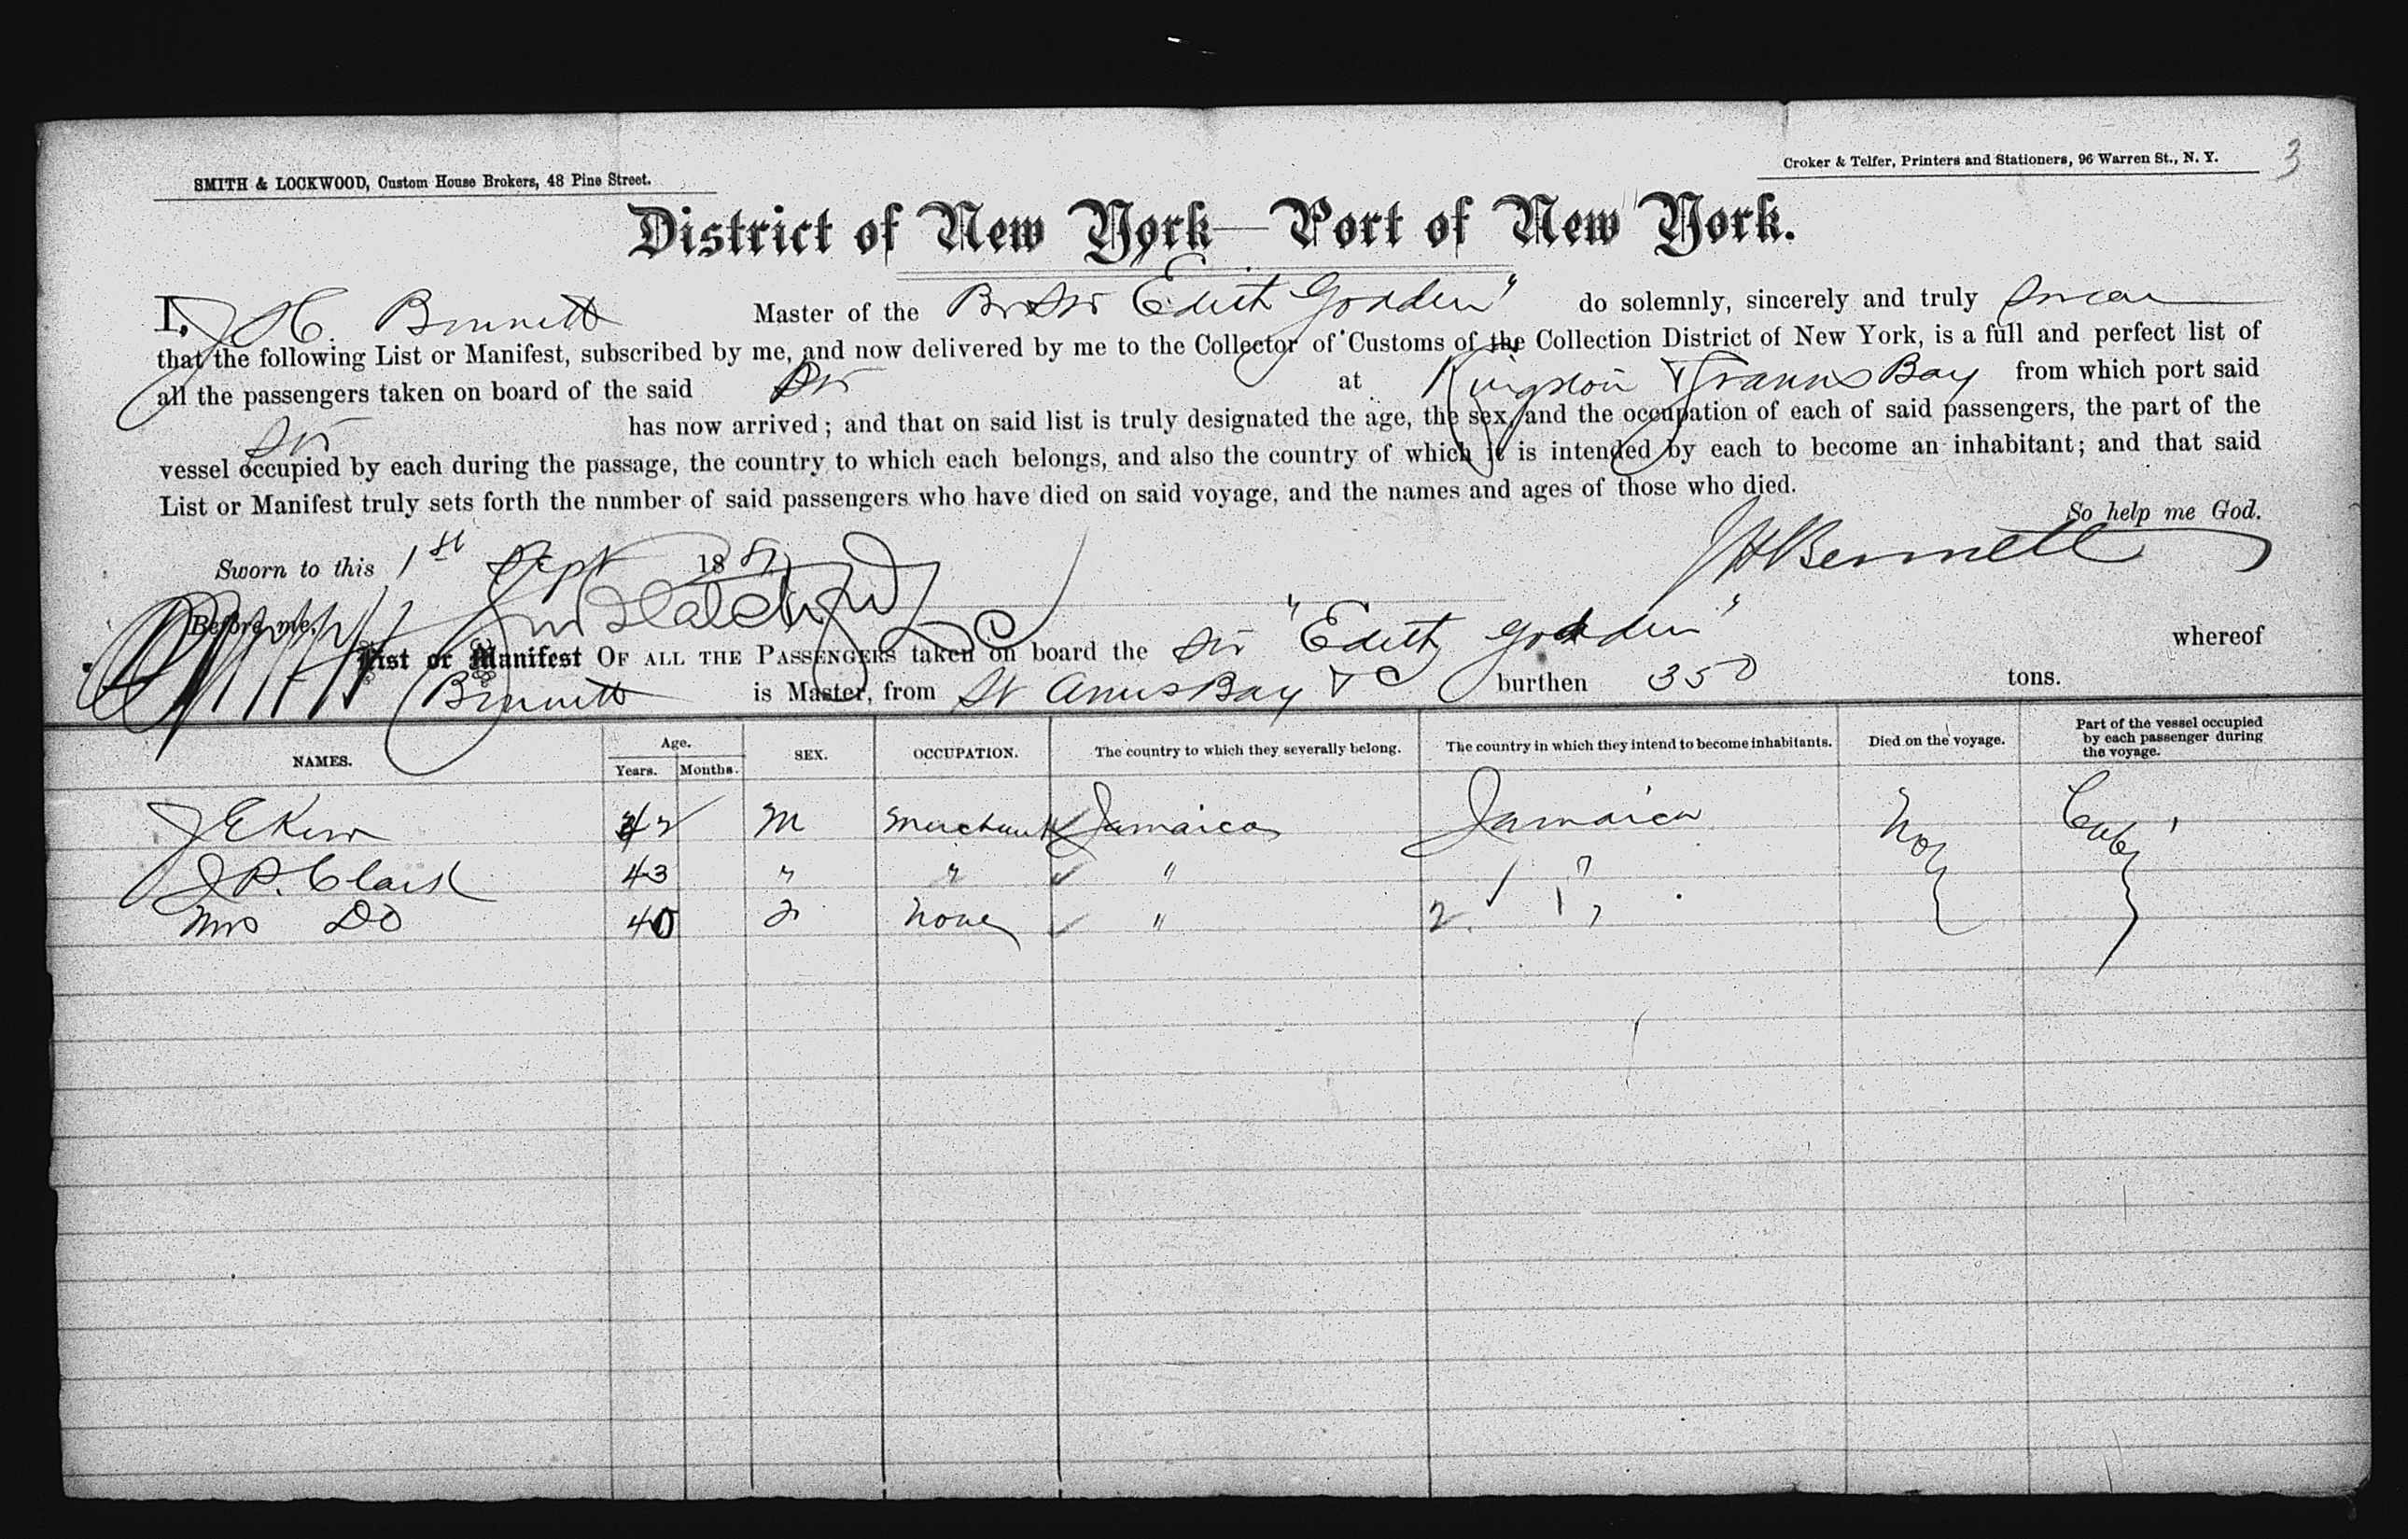 SMITH & LOCKWOOD, Custom House Brokers, 48 Pine Street.
Croker & Telfer, Printers and Stationers, 96 Warren St., N. Y.
3
District of New York—Port of New York.
I, J H. Bennett Master of the Br Str "Edith Godden" do solemnly, sincerely and truly swear
that the following List or Manifest, subscribed by me, and now delivered by me to the Collector of Customs of the Collection District of New York, is a full and perfect list of
all the passengers taken on board of the said Str at Kingston & from which port said
Str has now arrived; and that on said list is truly designated the age, the sex, and the occupation of each of said passengers, the part of the
vessel occupied by each during the passage, the country to which each belongs, and also the country of which it is intended by each to become an inhabitant; and that said
List or Manifest truly sets forth the number of said passengers who have died on said voyage, and the names and ages of those who died.
So help me God.
Sworn to this 1st Sept 188
JHBennett
Before me,
List or Manifest OF ALL THE PASSENGERS taken on board the Str "Edith Godden" whereof
Bennett is Master, from St Anns Bay &c burthen 350 tons.
NAMES. Age. Years. Months. SEX. OCCUPATION. The country to which they severally belong. The country in which they intend to become inhabitants. Died on the voyage. Part of the vessel occupied by each passenger during the voyage.
J E Kerr 42 M Merchant Jamaica Jamaica No Cabin
J P. Clark 43 " " " "
Mrs Do 40 F None " 2 "